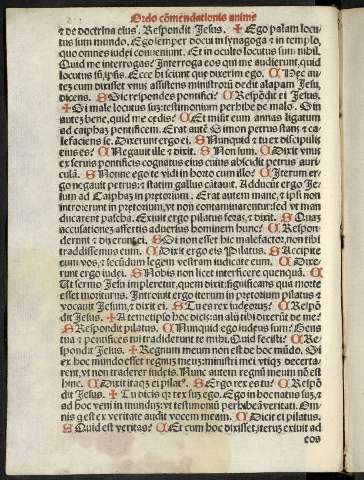 Ordo cōmendationis anime
& de doctrina eius. Respondit Jesus. ✠ Ego palam locu
tus sum mundo. Ego semper docui in synagoga & in templo,
quo omnes iudei conveniunt. Et in occulto locutus sum nihil.
Quid me interrogas? Interroga eos qui me audierunt, quid
locutus sū, ipsis. Ecce hi sciunt que dixerim ego. C Hec au
tez cum dixisset vnus assistens ministrorū dedit alapam Jesu,
dicens. S Sic respondes pontifici? C Respōdit ei Jesus.
✠ Si male locutus suz: testimonium perhibe de malo. Sin
autez bene, quid me cedis? C Et misit eum annas ligatum
ad caiphaz pontificem. Erat autē Simon petrus stans & ca
lefaciens se. Dixerunt ergo ei. S Nunquid & tu ex discipulis
eius es? C Negauit ille & dixit. S Non sum. C Dixit vnus
ex seruis pontificis cognatus eius cuius abscidit petrus auri
culā. S Nonne ego te vidi in horto cum illo? C Iterum er
go negauit petrus: & statim gallus cātauit. Adducūt ergo Je
sum ad Caiphaz in pretorium. Erat autem mane, & ipsi non
introierunt in pretorium, vt non contaminarent: sed vt man
ducarent pascha. Exiuit ergo pilatus foras, & dixit. S Quaz
accusationez affertis aduersus hominem hunc? C Respon
derunt & dixerunt ei. S Si non esset hic malefactor, non tibi
tradidissemus eum. C Dixit ergo eis Pilatus. S Accipite
eum vos, & secūdum legem vestram iudicate eum. C Dixe
runt ergo iudei. S Nobis non licet interficere quenquā. C
Ut sermo Jesu impleretur, quem dixit: significans qua morte
esset moriturus. Introiuit ergo iterum in pretorium pilatus &
vocauit Jesum, & dixit ei. S Tu es rex iudeorum? C Respō
dit Jesus. ✠ A temetipso hoc dicis: an alij tibi dixerūt de me?
S Respondit pilatus. C Nunquid ego iudeus sum? Gens
tua & pontifices tui tradiderunt te mihi. Quid fecisti? C Re
spondit Jesus. ✠ Regnum meum non est de hoc mūdo. Si
ex hoc mundo esset regnuz meuz: ministri mei vtiqz decerta
rent, vt non traderer iudeis. Nunc autem regnū meum nō est
hinc. C Dixit itaqz ei pilatꝰ. S Ergo rex es tu? C Respō
dit Jesus. ✠ Tu dicis qz rex suz ego. Ego in hoc natus suz, &
ad hoc veni in munduz: vt testimoniū perhibeā veritati. Om
nis q est ex veritate audit vocem meam. C Dicit ei pilatus.
S Quid est veritas? C Et cum hoc dixisset, iteruz exiuit ad
eos